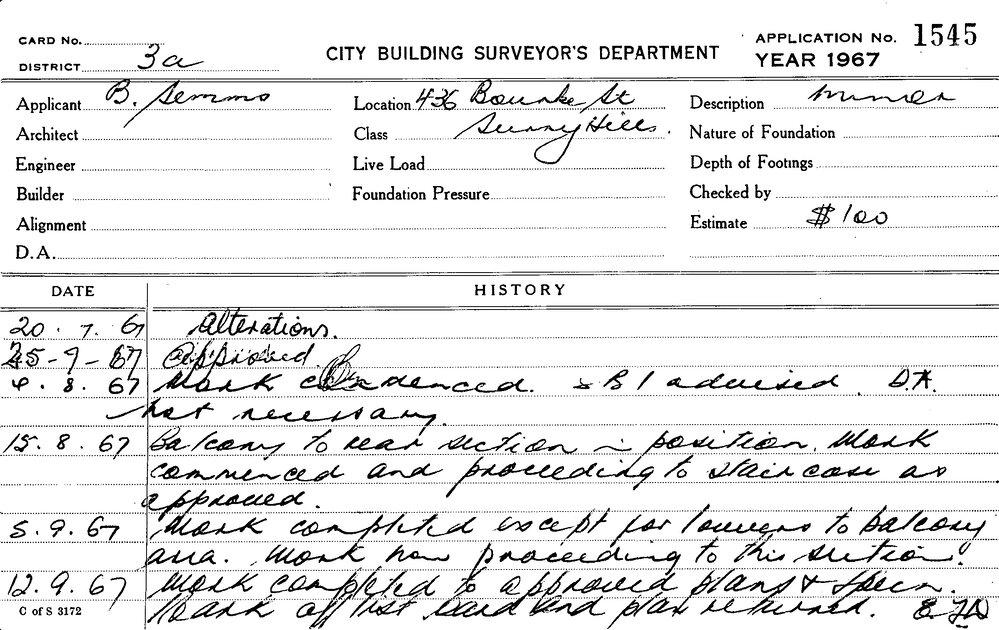 CARD No. CITY BUILDING SURVEYOR'S DEPARTMENT APPLICATION No. 1545
DISTRICT 3a YEAR 1967
Applicant B. Semmo Location 436 Bourke St Description minor
Architect Class Surry Hills. Nature of Foundation
Engineer Live Load Depth of Footings
Builder Foundation Pressure Checked by
Alignment Estimate $100
D.A.
DATE HISTORY
20.7.67 Alterations.
25-9-67 Approved
4.8.67 Work commenced. B I advised D.A.
not necessary.
15.8.67 Balcony to rear section in position. Work
commenced and proceeding to staircase as
approved.
5.9.67 Work completed except for louvers to balcony
area. Work now proceeding to this section.
12.9.67 Work completed to approved plans & specn.
Mark off list card and plan returned.
C of S 3172